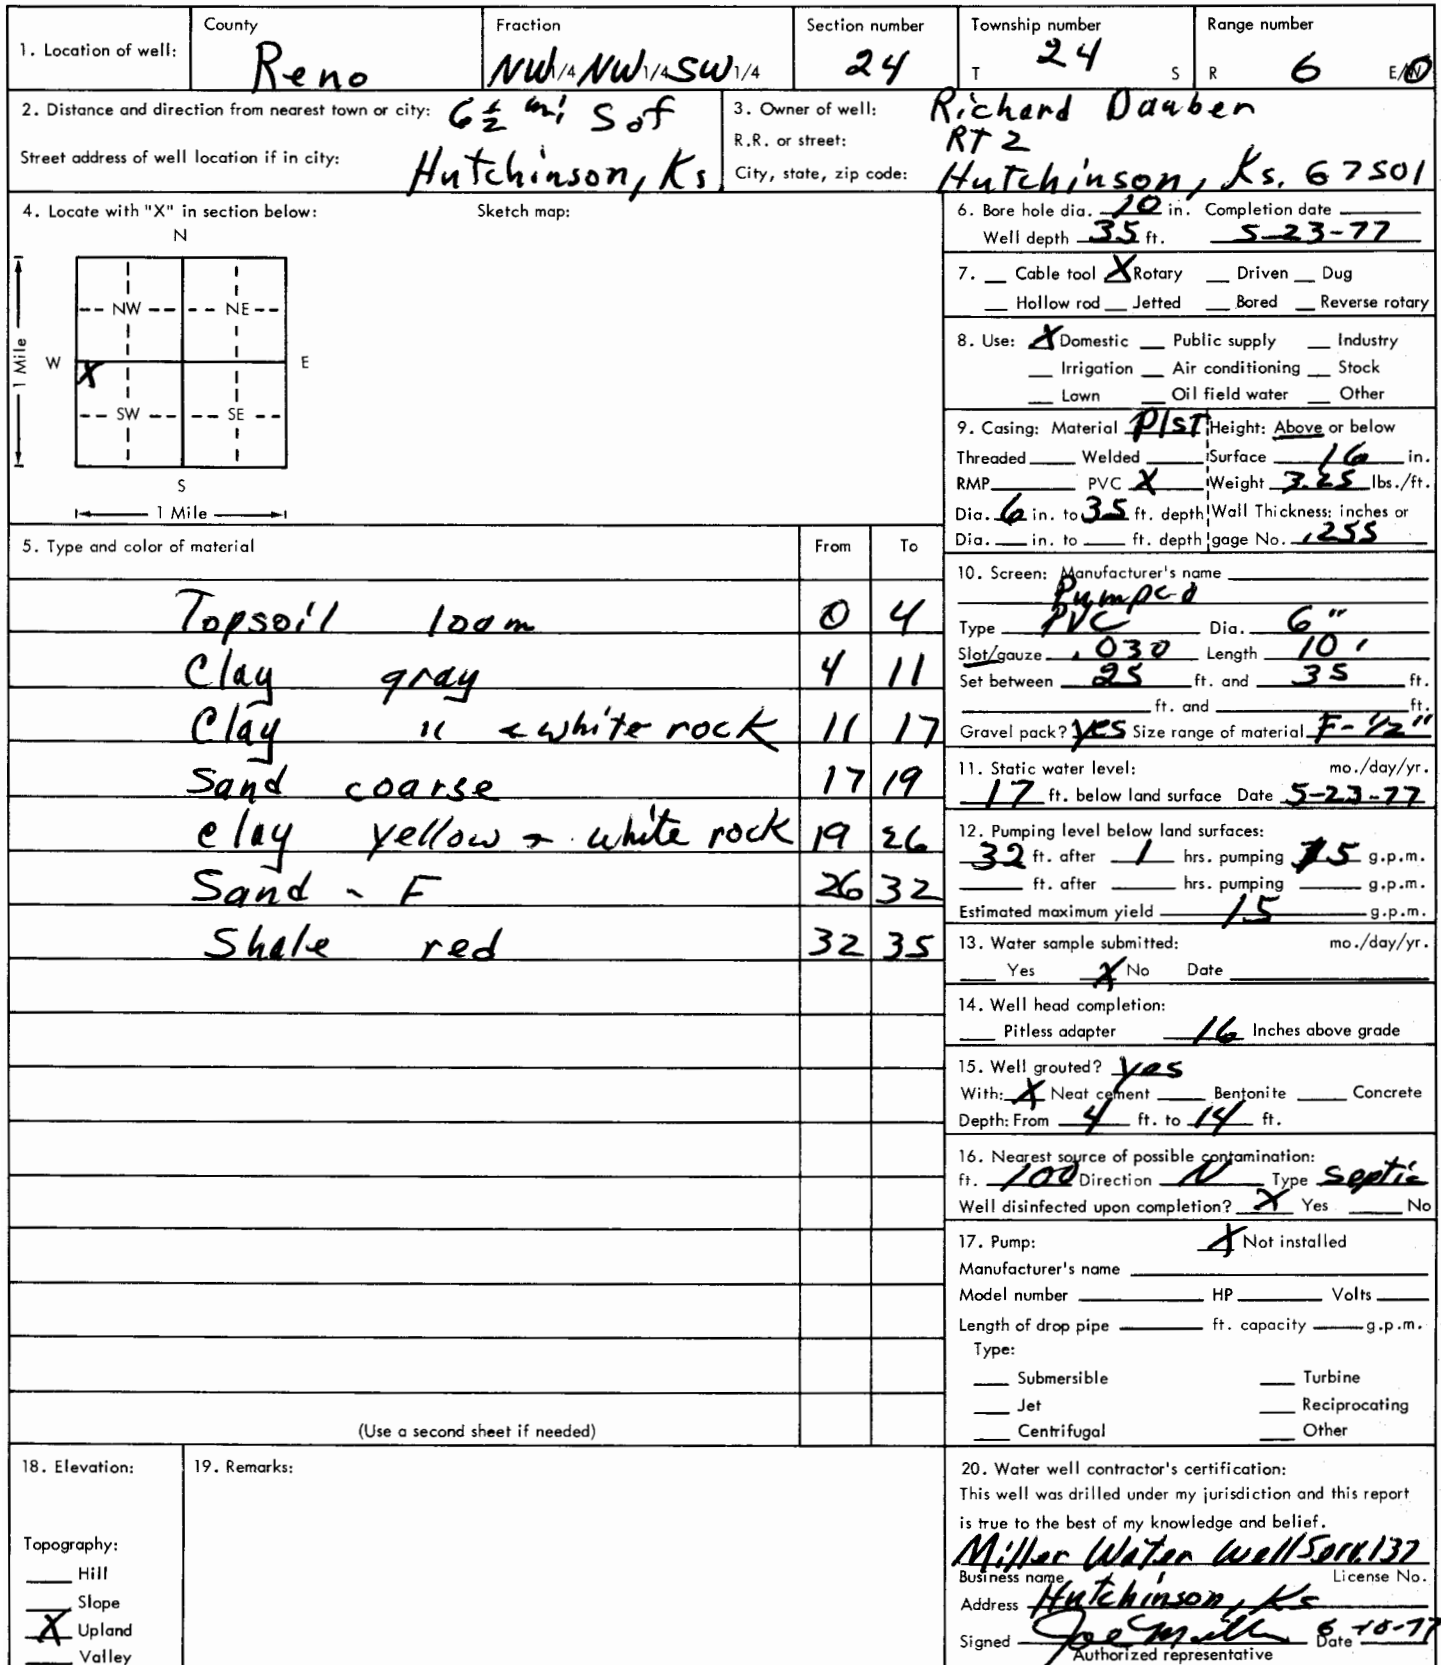 1. Location of well: County Reno Fraction NW 1/4 NW 1/4 SW 1/4 Section number 24 Township number T 24 S Range number R 6 E/W
2. Distance and direction from nearest town or city: 6 1/2 mi S of
Street address of well location if in city: Hutchinson, Ks
3. Owner of well: Richard Dauber
R.R. or street: RT 2
City, state, zip code: Hutchinson, Ks. 67501
4. Locate with "X" in section below: Sketch map:
N
NW NE
W X E
SW SE
S
1 Mile
1 Mile
5. Type and color of material From To
Topsoil loam 0 4
Clay gray 4 11
Clay " & white rock 11 17
Sand coarse 17 19
Clay yellow & white rock 19 26
Sand - F 26 32
Shale red 32 35
(Use a second sheet if needed)
6. Bore hole dia. 10 in. Completion date
Well depth 35 ft. 5-23-77
7. Cable tool X Rotary Driven Dug
Hollow rod Jetted Bored Reverse rotary
8. Use: X Domestic Public supply Industry
Irrigation Air conditioning Stock
Lawn Oil field water Other
9. Casing: Material Plst Height: Above or below
Threaded Welded Surface 16 in.
RMP PVC X Weight 3.25 lbs./ft.
Dia. 6 in. to 35 ft. depth Wall Thickness: inches or
Dia. in. to ft. depth gage No. .255
10. Screen: Manufacturer's name
Type PVC Dia. 6"
Slot/gauze .030 Length 10'
Set between 25 ft. and 35 ft.
ft. and ft.
Gravel pack? Yes Size range of material F-1/2"
11. Static water level: mo./day/yr.
17 ft. below land surface Date 5-23-77
12. Pumping level below land surfaces:
32 ft. after 1 hrs. pumping 15 g.p.m.
ft. after hrs. pumping g.p.m.
Estimated maximum yield 15 g.p.m.
13. Water sample submitted: mo./day/yr.
Yes X No Date
14. Well head completion:
Pitless adapter 16 Inches above grade
15. Well grouted? Yes
With: X Neat cement Bentonite Concrete
Depth: From 4 ft. to 14 ft.
16. Nearest source of possible contamination:
ft. 100 Direction N Type Septic
Well disinfected upon completion? X Yes No
17. Pump: X Not installed
Manufacturer's name
Model number HP Volts
Length of drop pipe ft. capacity g.p.m.
Type:
Submersible Turbine
Jet Reciprocating
Centrifugal Other
18. Elevation:
Topography:
Hill
Slope
X Upland
Valley
19. Remarks:
20. Water well contractor's certification:
This well was drilled under my jurisdiction and this report
is true to the best of my knowledge and belief.
Miller Water Well Serv. 137
Business name License No.
Address Hutchinson, Ks
Signed Joe Miller Date
Authorized representative